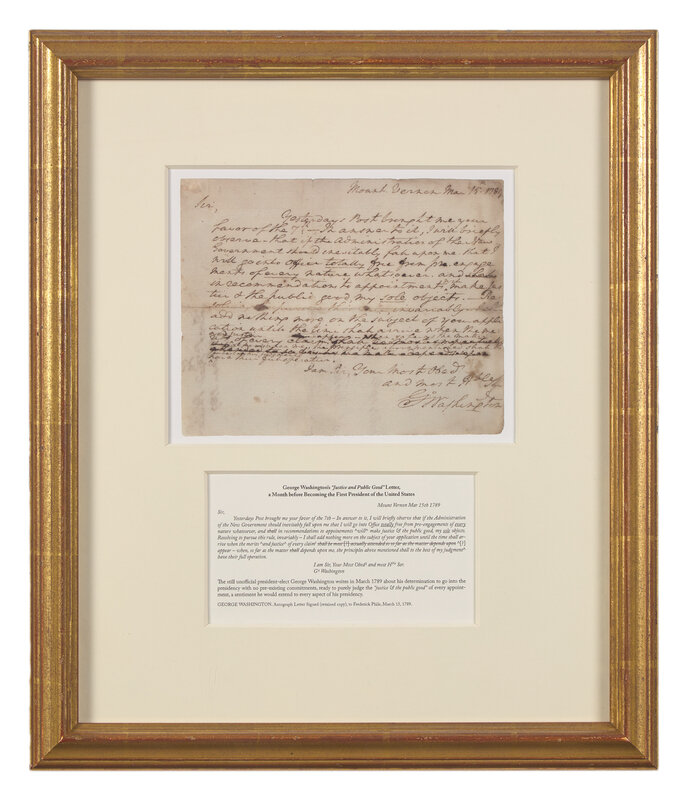 Mount Vernon Mar 15th 1789
Sir,
Yesterdays Post brought me your
favor of the 7th — In answer to it, I will briefly
observe that if the Administration of the New
Government should inevitably fall upon me that I
will go into Office totally free from pre-engage
ments of every nature whatsoever, and
in recommendations to appointments will make jus
tice & the public good, my sole objects. — Re
this invariably
add nothing more on the subject of your appli
cation until the time shall arrive when the me
of every claim
have their full operation.
I am Sir, Your Most Obed
and most Hble Ser
Go Washington
George Washington's "Justice and Public Good" Letter,
a Month before Becoming the First President of the United States
Mount Vernon Mar 15th 1789
Sir,
Yesterdays Post brought me your favor of the 7th – In answer to it, I will briefly observe that if the Administration
of the New Government should inevitably fall upon me that I will go into Office totally free from pre-engagements of every
nature whatsoever, and shall in recommendations to appointments ^will^ make justice & the public good, my sole objects.
Resolving to pursue this rule, invariably – I shall add nothing more on the subject of your application until the time shall ar-
rive when the merits ^and justice^ of every claim shall be most [?] actually attended to so far as the matter depends upon ^[?]
appear – when, so far as the matter shall depends upon me, the principles above mentioned shall to the best of my judgment^
have their full operation.
I am Sir, Your Most Obedt and most Hble Ser.
Go Washington
The still unofficial president-elect George Washington writes in March 1789 about his determination to go into the
presidency with no pre-existing commitments, ready to purely judge the "justice & the public good" of every appoint-
ment, a sentiment he would extend to every aspect of his presidency.
GEORGE WASHINGTON. Autograph Letter Signed (retained copy), to Frederick Phile, March 15, 1789.